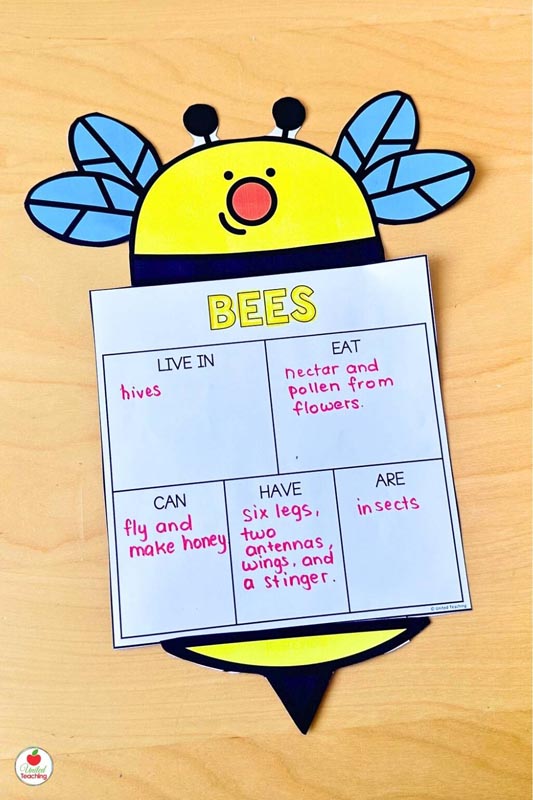 BEES
LIVE IN
hives
EAT
nectar and
pollen from
flowers.
CAN
fly and
make honey
HAVE
six legs,
two
antennas,
wings, and
a stinger.
ARE
insects
© United Teaching
United
Teaching